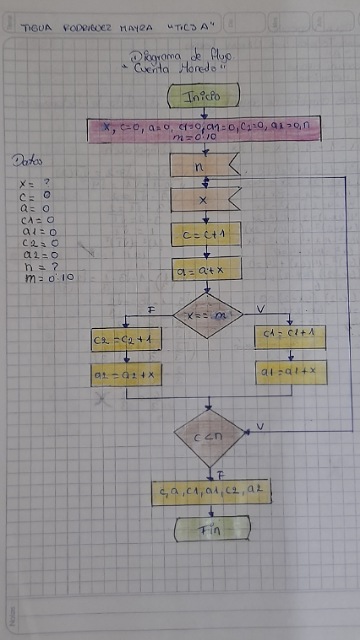 TIGUA RODRIGUEZ MAYRA "TICS A"
Diagrama de flujo
"Cuenta Moneda"
Inicio
x, c=0, a=0, c1=0, a1=0, c2=0, a2=0, n
m=0.10
Datos
x = ?
c = 0
a = 0
c1 = 0
a1 = 0
c2 = 0
a2 = 0
n = ?
m = 0.10
n
x
c = c+1
a = a+x
x == m
F
V
c2 = c2+1
c1 = c1+1
a2 = a2+x
a1 = a1+x
c<n
V
F
c, a, c1, a1, c2, a2
Fin